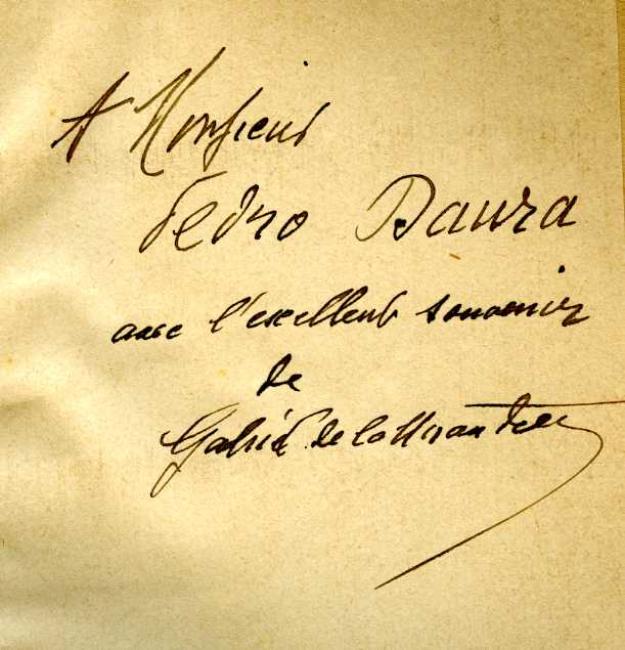 A Monsieur
Pedro Daura
avec l'excellent souvenir
de
Gabriel de